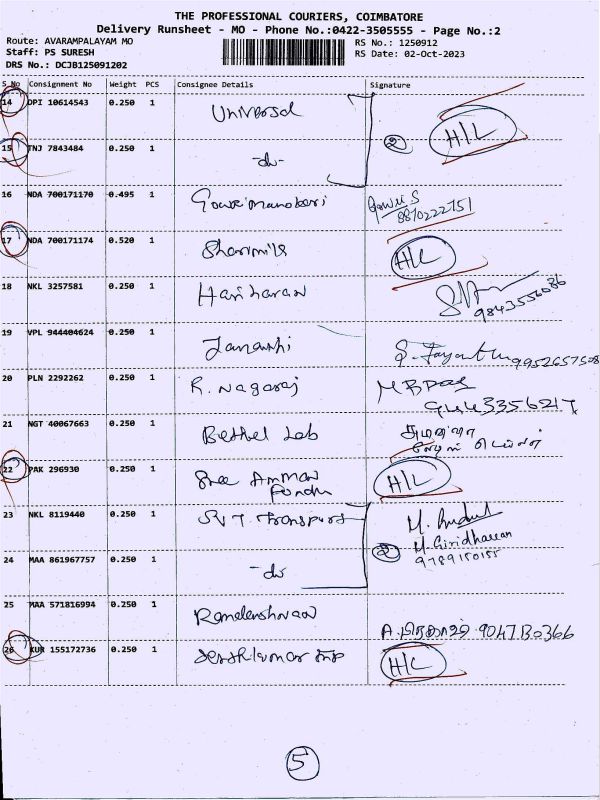 THE PROFESSIONAL COURIERS, COIMBATORE
Delivery Runsheet - MO - Phone No.:0422-3505555 - Page No.:2
Route: AVARAMPALAYAM MO
RS No.: 1250912
Staff: PS SURESH
RS Date: 02-Oct-2023
DRS No.: DCJB125091202
S No Consignment No Weight PCS Consignee Details Signature
14 OPI 10614543 0.250 1 Universal H/L
15 TNJ 7843484 0.250 1 -do- 2
16 NDA 700171170 0.495 1 Gowri S
8870222751
17 NDA 700171174 0.520 1 H/L
18 NKL 3257581 0.250 1 Hariharan
9843556086
19 VPL 944404624 0.250 1 9952657508
20 PLN 2292262 0.250 1 R. Nagaraj
9443356217
21 NGT 40067663 0.250 1 Bethel Lab
22 PAK 296930 0.250 1 Sree Amman H/L
23 NKL 8119440 0.250 1 SVT. Transport
M. Giridharan
24 MAA 861967757 0.250 1 -do- 2 9789150155
25 MAA 571816994 0.250 1
26 KUR 155172736 0.250 1 H/L
5